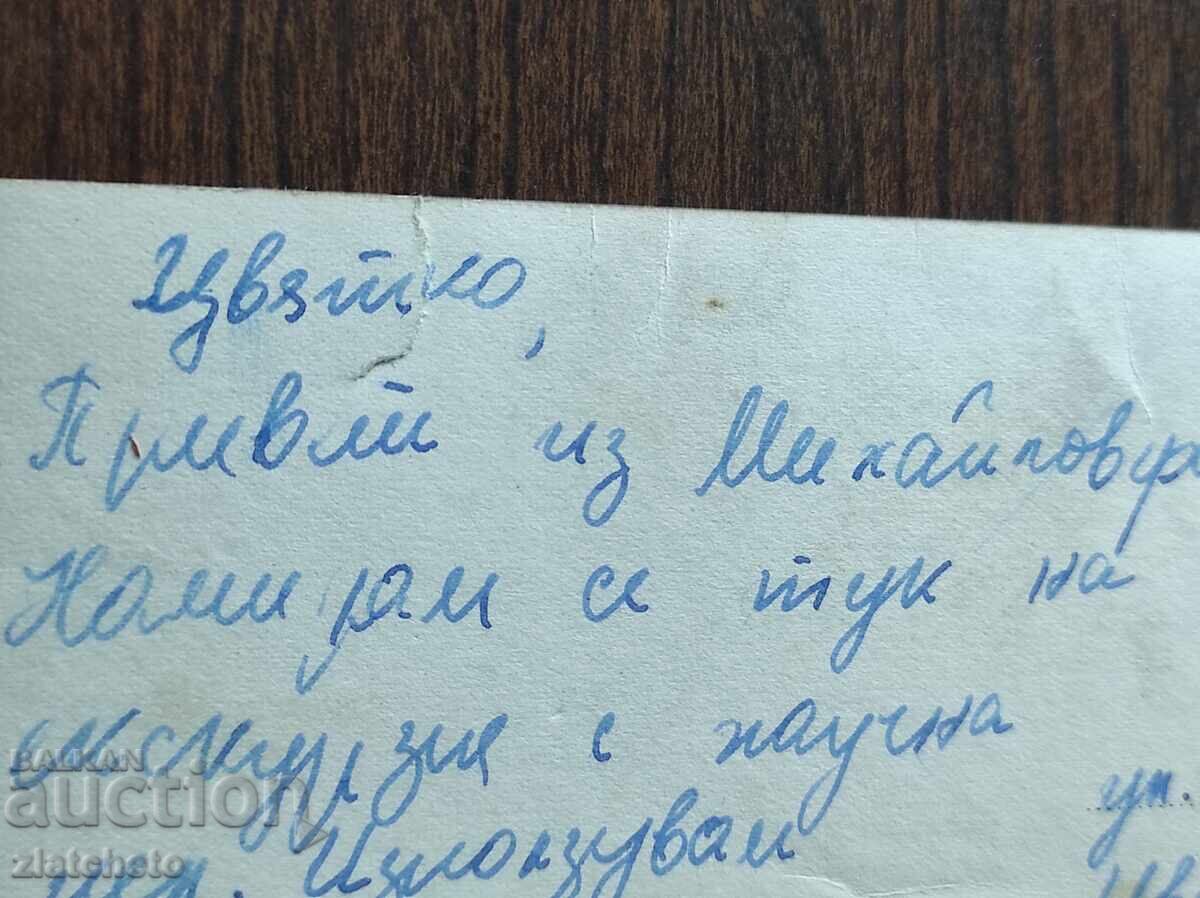 Цвятко,
Привет из Михайловгр
Намирам се тук на
екскурзия с научна
цел. Използувам
ул.
BALKAN
auction
zlatcheto